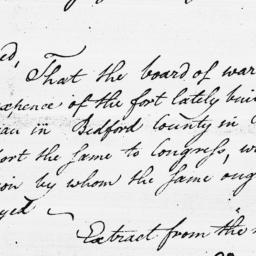 ed,
That the board of war
expence of the fort lately buil
au in Bedford County in
ort the same to Congress, w
ion by whom the same oug
yed
Extract from the